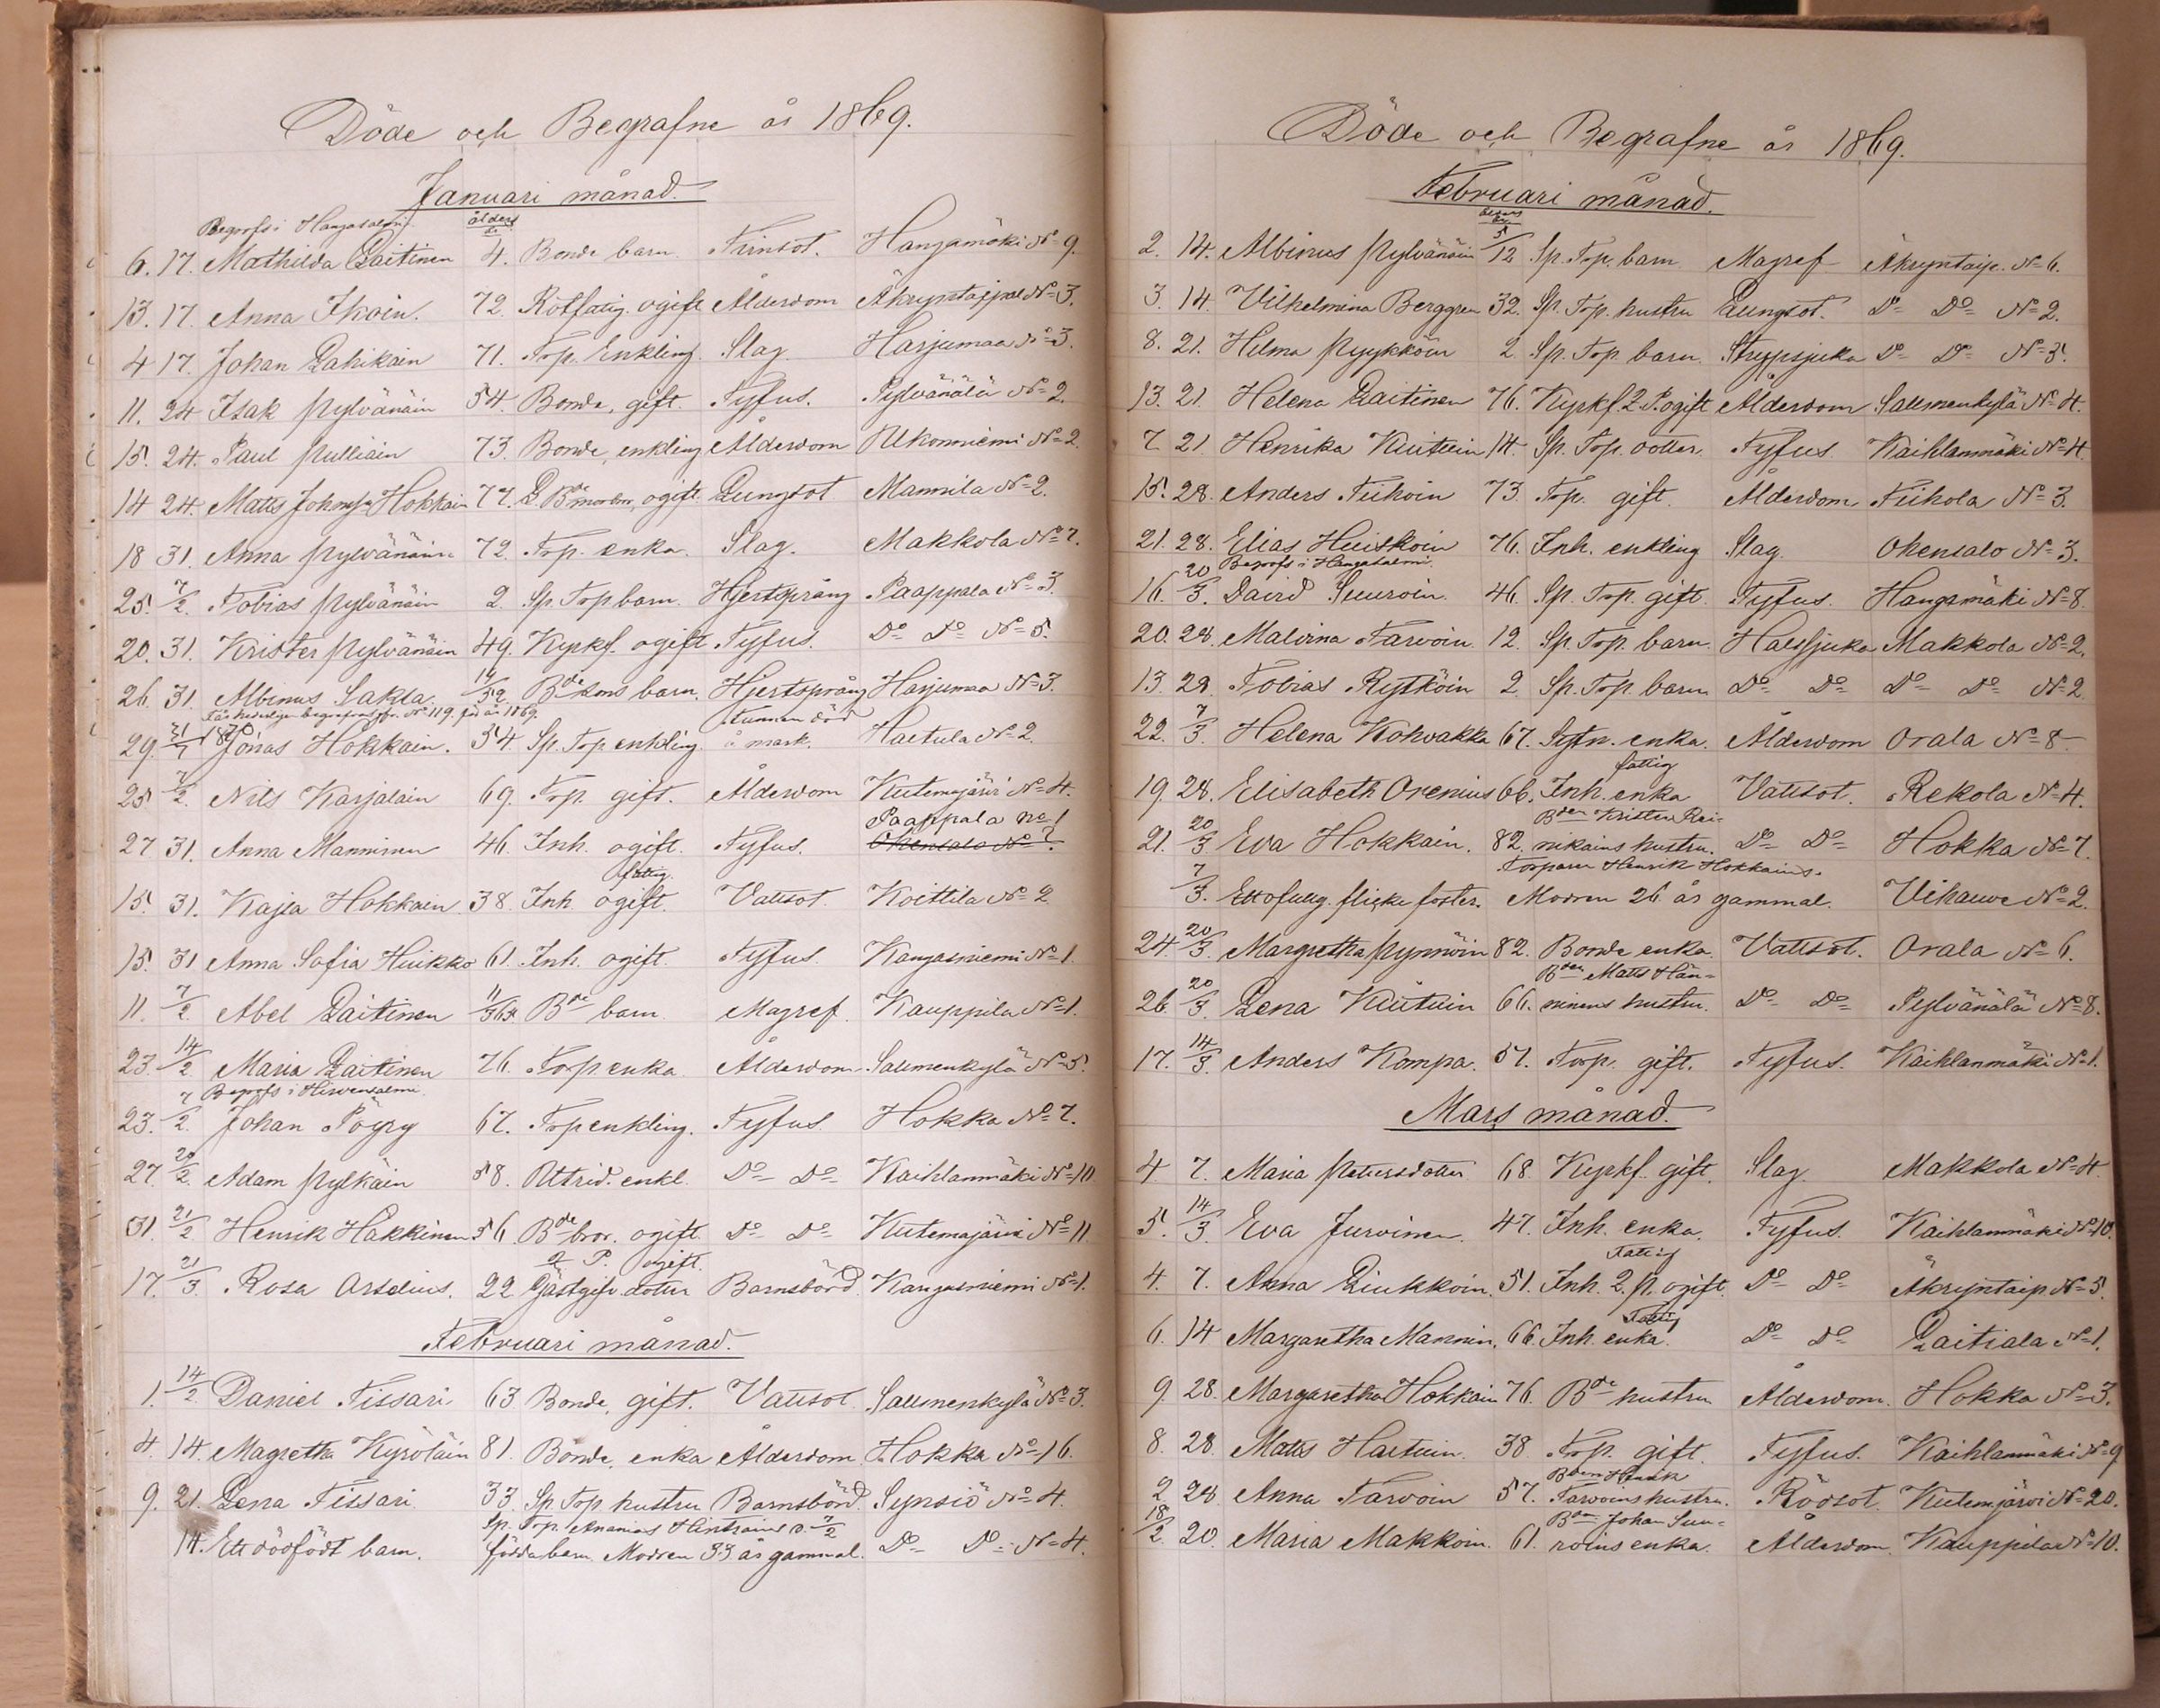 Döde och Begrafne år 1869.
Januari månad.
Begrofs i Hangasalmi ålders år
6. 17. Mathilda Laitinen 4. Bonde barn. Hangamäki No 9.
13. 17. Anna Ikoin. 72. Rotfatig. ogift Ålderdom Äkryntaipal No 3.
4 17. Johan Lahikain 71. Torp. Enkling. Slag. Harjumaa No 3.
11. 24 Isak Pylvänäin 54. Bonde, gift. Tyfus. Pylvänälä No 2.
15. 24. Paul Pulliäin 73. Bonde, enkling Ålderdom Ukonniemi No 2
14 24. Matts Johansson Hokkain 77. ogift. Lungsot Mannila No 2.
18 31. Anna Pylvänäin 72. Torp. enka. Slag. Makkola No 7.
25. 7/2. Tobias Pylvänäin 2. Sp. Torp barn. Hjertsprång Paappala No 3.
20. 31. Krister Pylvänäin 49. Kyrkf. ogift Tyfus. Do Do No 5.
26. 31. Albinus Sakla. 14/52 Bde barn. Hjertsprång Harjumaa No 3.
No 119. för år 1869. funnen död
29. Jonas Hokkain. 54. Sp. Torp enkling. å mark. Haetula No 2.
25 7/2. Nils Karjalain 69. Torp. gift. Ålderdom Kutemajärvi No 4.
Paappala No 1
27 31. Anna Manninen 46. Inh. ogift. Tyfus. Okensalo No 7.
fattig.
15. 31. Kajsa Hokkain 38. Inh. ogift. Vattsot. Koittila No 2
15. 31 Anna Sofia Huikko 61. Inh. ogift. Tyfus. Kangasniemi No 1.
11. 7/2. Abel Laitinen 11/365. Bde barn. Magref. Kauppila No 1.
23. 14/2 Maria Laitinen 76. Torp enka. Ålderdom. Salmenkylä No 5.
Begrofs i Hirvensalmi.
23. 7/2. Johan Pöyry 67. Torp enkling. Tyfus. Hokka No 7.
27. 20/2. Adam Pylkäin 58. Attrid. enkl. Do Do Kaihlanmäki No 10
31. 21/2 Henrik Häkkinen 56. Bde bror. ogift. Do Do Kutemajärvi No 11
2 P. ogift.
17. 21/3. Rosa Arselius. 22 Gästgifv. dotter Barnsbörd. Kangasniemi No 1.
Februari månad.
1. 14/2 Daniel Tissari 63 Bonde, gift. Vattsot. Salmenkylä No 3.
4. 14. Magretha Kyröläin 81. Bonde, enka Ålderdom Hokka No 16.
9. 21. Lena Tissari. 33. Sp. Torp hustru Barnsbörd. Synsiö No 4.
Sp. Torp. Ananias Hintsains d. 7/2
14. Ett dödfödt barn. födda barn. Modren 33 år gammal. Do Do No 4.
Döde och Begrafne år 1869.
Februari månad.
ålders år
2. 14. Albinus Pylvänäin 5/12 Sp. Torp. barn Magref Äkryntaip. No 6.
3. 14. Vilhelmina Berggren 32. Sp. Torp. hustru Lungsot. Do Do No 2.
8. 21. Hilma Pyykköin 2 Sp. Torp. barn. Strypsjuka Do Do No 3.
13. 21. Helena Laitinen 76. Kyrkf. 2. P. ogift Ålderdom Salmenkylä No 4.
7. 21. Henrika Kuituin 14. Sp. Torp. dotter. Tyfus. Kaihlanmäki No 4.
15. 28. Anders Tiihoin 73. Torp. gift. Ålderdom Tiihola No 3.
21. 28. Elias Huiskoin 76. Inh. enkling Slag. Okensalo No 3.
Begrofs i Hangasalmi.
16. 20/3. David Suuroin. 46. Sp. Torp. gift. Tyfus. Hangamäki No 8.
20. 28. Malvina Tarvoin. 12. Sp. Torp. barn. Halssjuka Makkola No 2.
13. 28. Tobias Rytköin 2. Sp. Torp. barn Do Do Do Do No 2.
22. 7/3. Helena Kohvakka 67. Sytn. enka. Ålderdom Orala No 8
fattig
19. 28. Elisabeth Orenius 66. Inh. enka Vattsot. Rekola No 4.
Bden Krister Rei-
21. 20/3 Eva Hokkain. 82. nikains hustru. Do Do Hokka No 7.
Torparen Henrik Hokkains.
7/3. Ett ofullg. flicke foster. Modren 26 år gammal. Vihauve No 2.
24. 20/3. Margretha Pynnöin 82. Bonde enka. Vattsot. Orala No 6.
Bden Matts Hän-
26. 20/3. Lena Kuituin 66. ninens hustru. Do Do Pylvänälä No 8.
17. 14/3. Anders Kompa. 57. Torp. gift. Tyfus. Kaihlanmäki No 1.
Mars månad.
4 7. Maria Petersdotter 68. Kyrkf. gift. Slag Makkola No 4
5. 14/3. Eva Jurvinen. 47. Inh. enka. Tyfus. Kaihlanmäki No 10.
Fattig
4. 7. Anna Liukkoin. 51. Inh. 2. p. ogift. Do Do Äkryntaip No 5.
Fattig
6. 14 Margaretha Mannin. 66. Inh. enka. Do Do Laitiala No 1.
9. 28. Margaretha Hokkain 76. Bde hustru Ålderdom. Hokka No 3.
8. 28. Matts Haituin. 38. Torp. gift. Tyfus. Kaihlanmäki No 9
Bden Henrik
2 28 Anna Tarvoin 57. Tarvoins hustru. Rödsot. Kutemjärvi No 20.
Bden Johan Suu-
18/2. 20. Maria Makkoin. 61. roins enka. Ålderdom. Kauppila No 10.